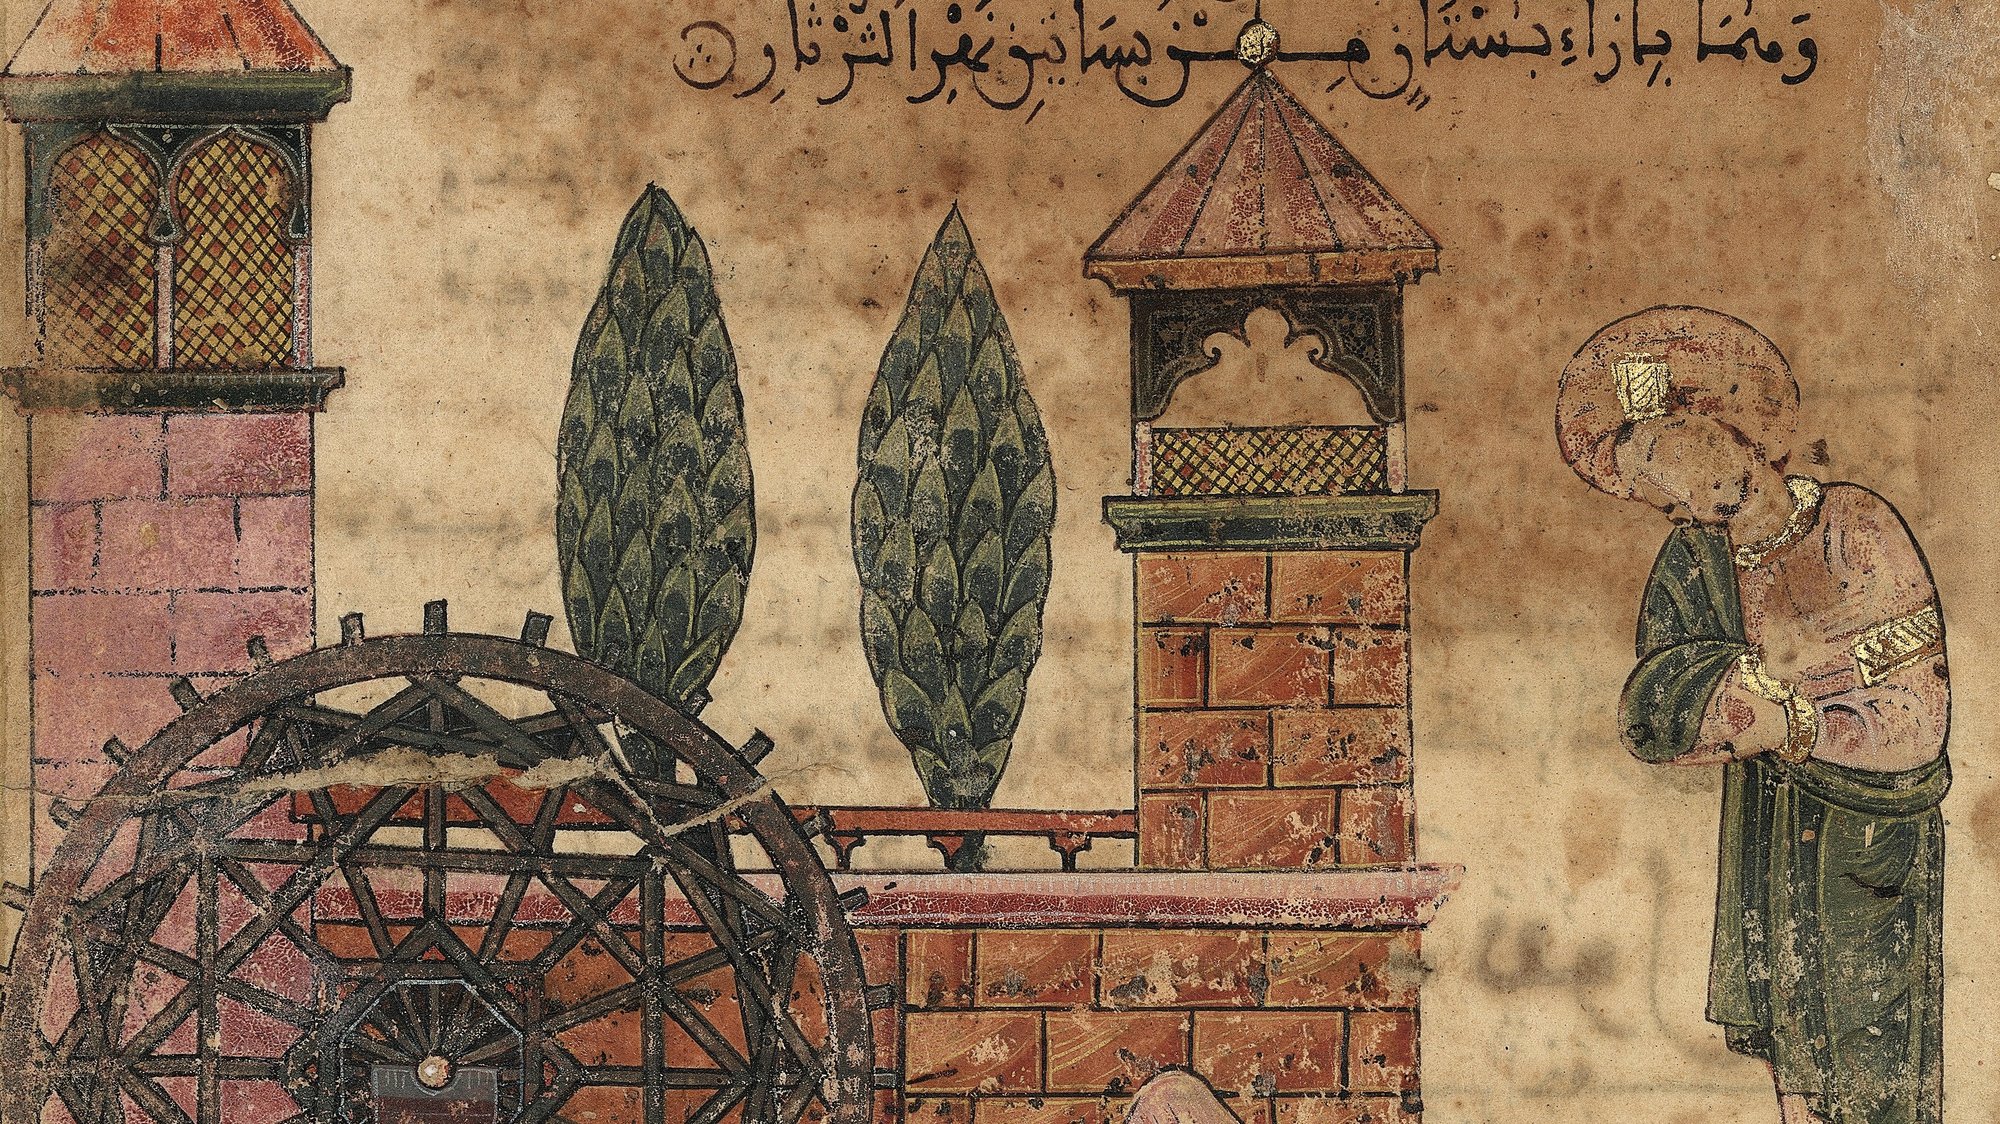 وَهُمَا بِازَاءِ بُسْتَانٍ مِنْ بَسَاتِينِ نَهْرِ الثَّرْثَارِ